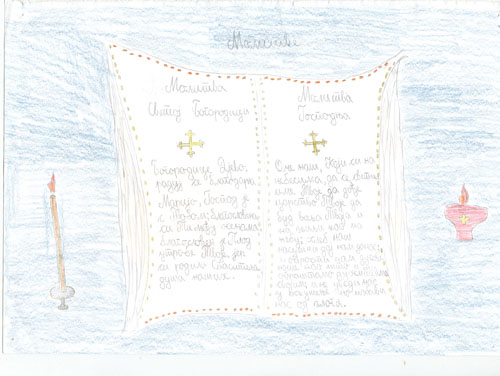 Молитве
Молитва
Светој Богородици
Богородице Дјево,
радуј се благодатна
Маријо, Господ је
с Тобом, благословена
си Ти међу женама
и благословен је Плод
утробе Твоје, јер
си родила Спаситеља
душа наших.
Молитва
Господња
Оче наш, Који си на
небесима, да се свети
име Твоје, да дође
царство Твоје, да
буде воља Твоја и
на земљи као на
небу; хлеб наш
насушни дај нам данас;
и опрости нам дугове
наше као што и
опраштамо дужницима
својим; и не уведи нас
у искушење, но избави
нас од злога.